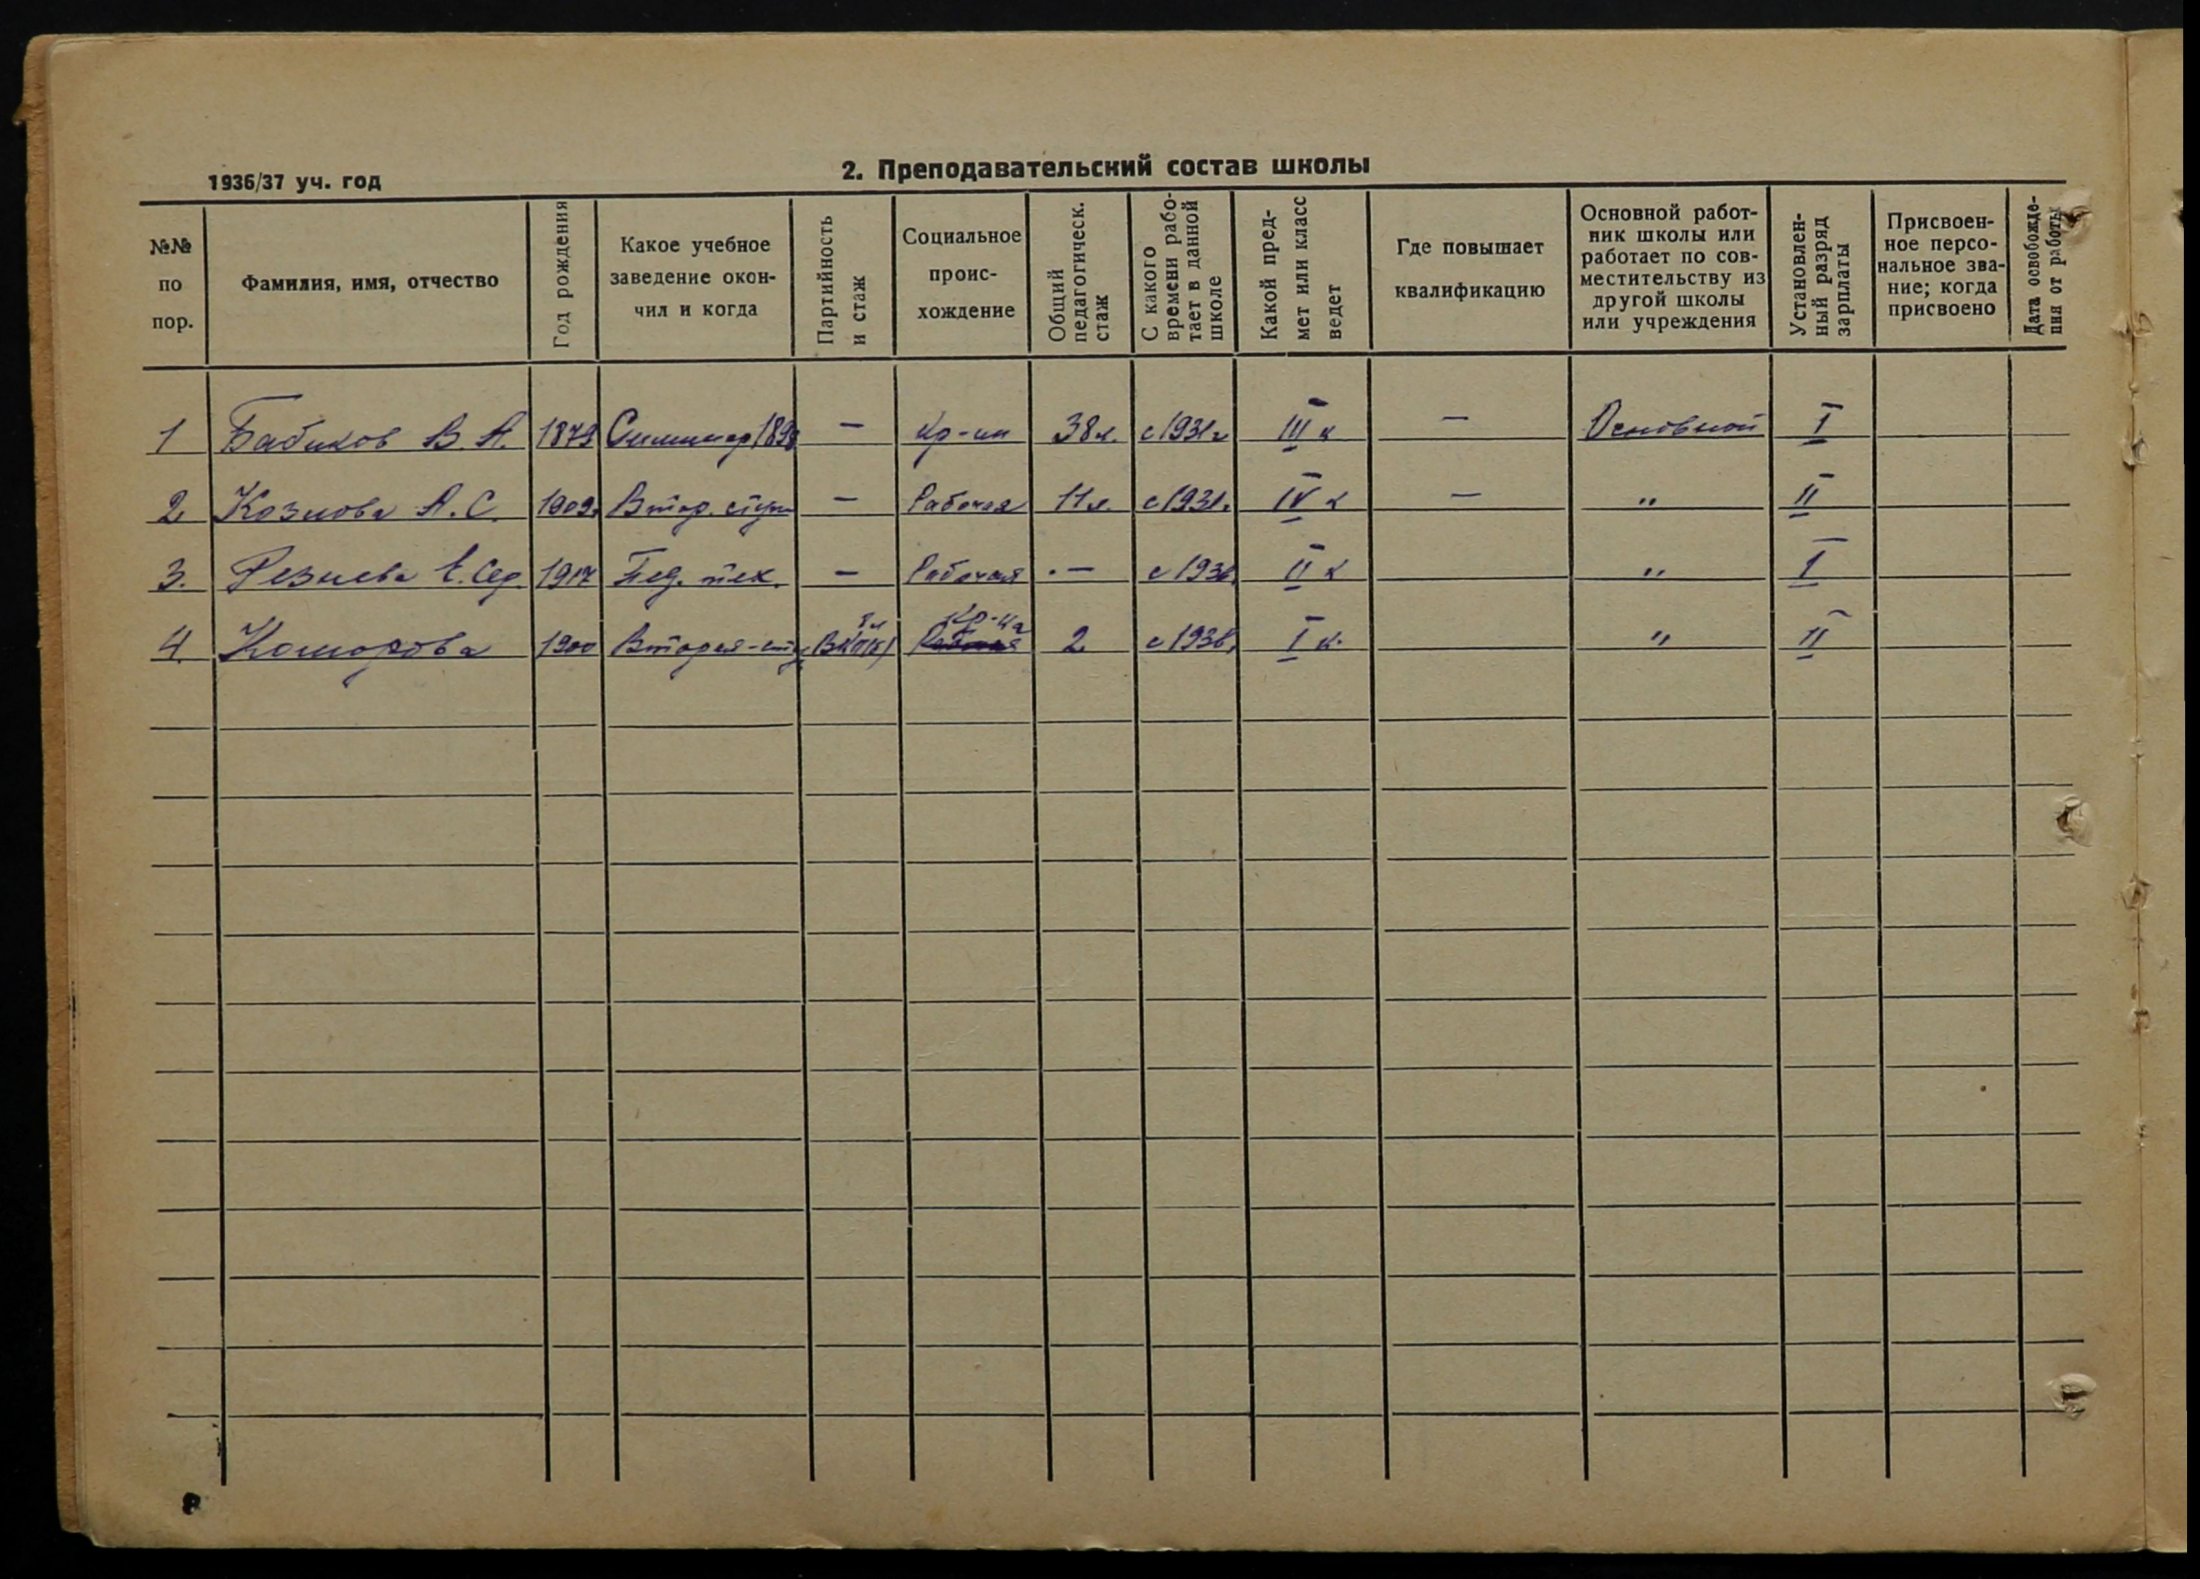 1936/37 уч. год
2. Преподавательский состав школы
№№ по пор.
Фамилия, имя, отчество
Год рождения
Какое учебное заведение окон- чил и когда
Партийность и стаж
Социальное проис- хождение
Общий педагогическ. стаж
С какого времени рабо- тает в данной школе
Какой пред- мет или класс ведет
Где повышает квалификацию
Основной работ- ник школы или работает по сов- местительству из другой школы или учреждения
Установлен- ный разряд зарплаты
Присвоен- ное персо- нальное зва- ние; когда присвоено
Дата освобожде- ния от работы
1 Бабиков В. А. 1879 1898 — кр-ин 38 л. с 1931 г III к — Основной I
2 Козлова А. С. 1909 Втор. ступ — Рабочая 11 л. с 1931г. IV к — " II
3. 1917 Пед. тех. — Рабочая . — с 1936 II к " I
4. Комарова 1900 Вторая-сту ВКП(б) Кр-ка 2 с 1936 I к. " II
8